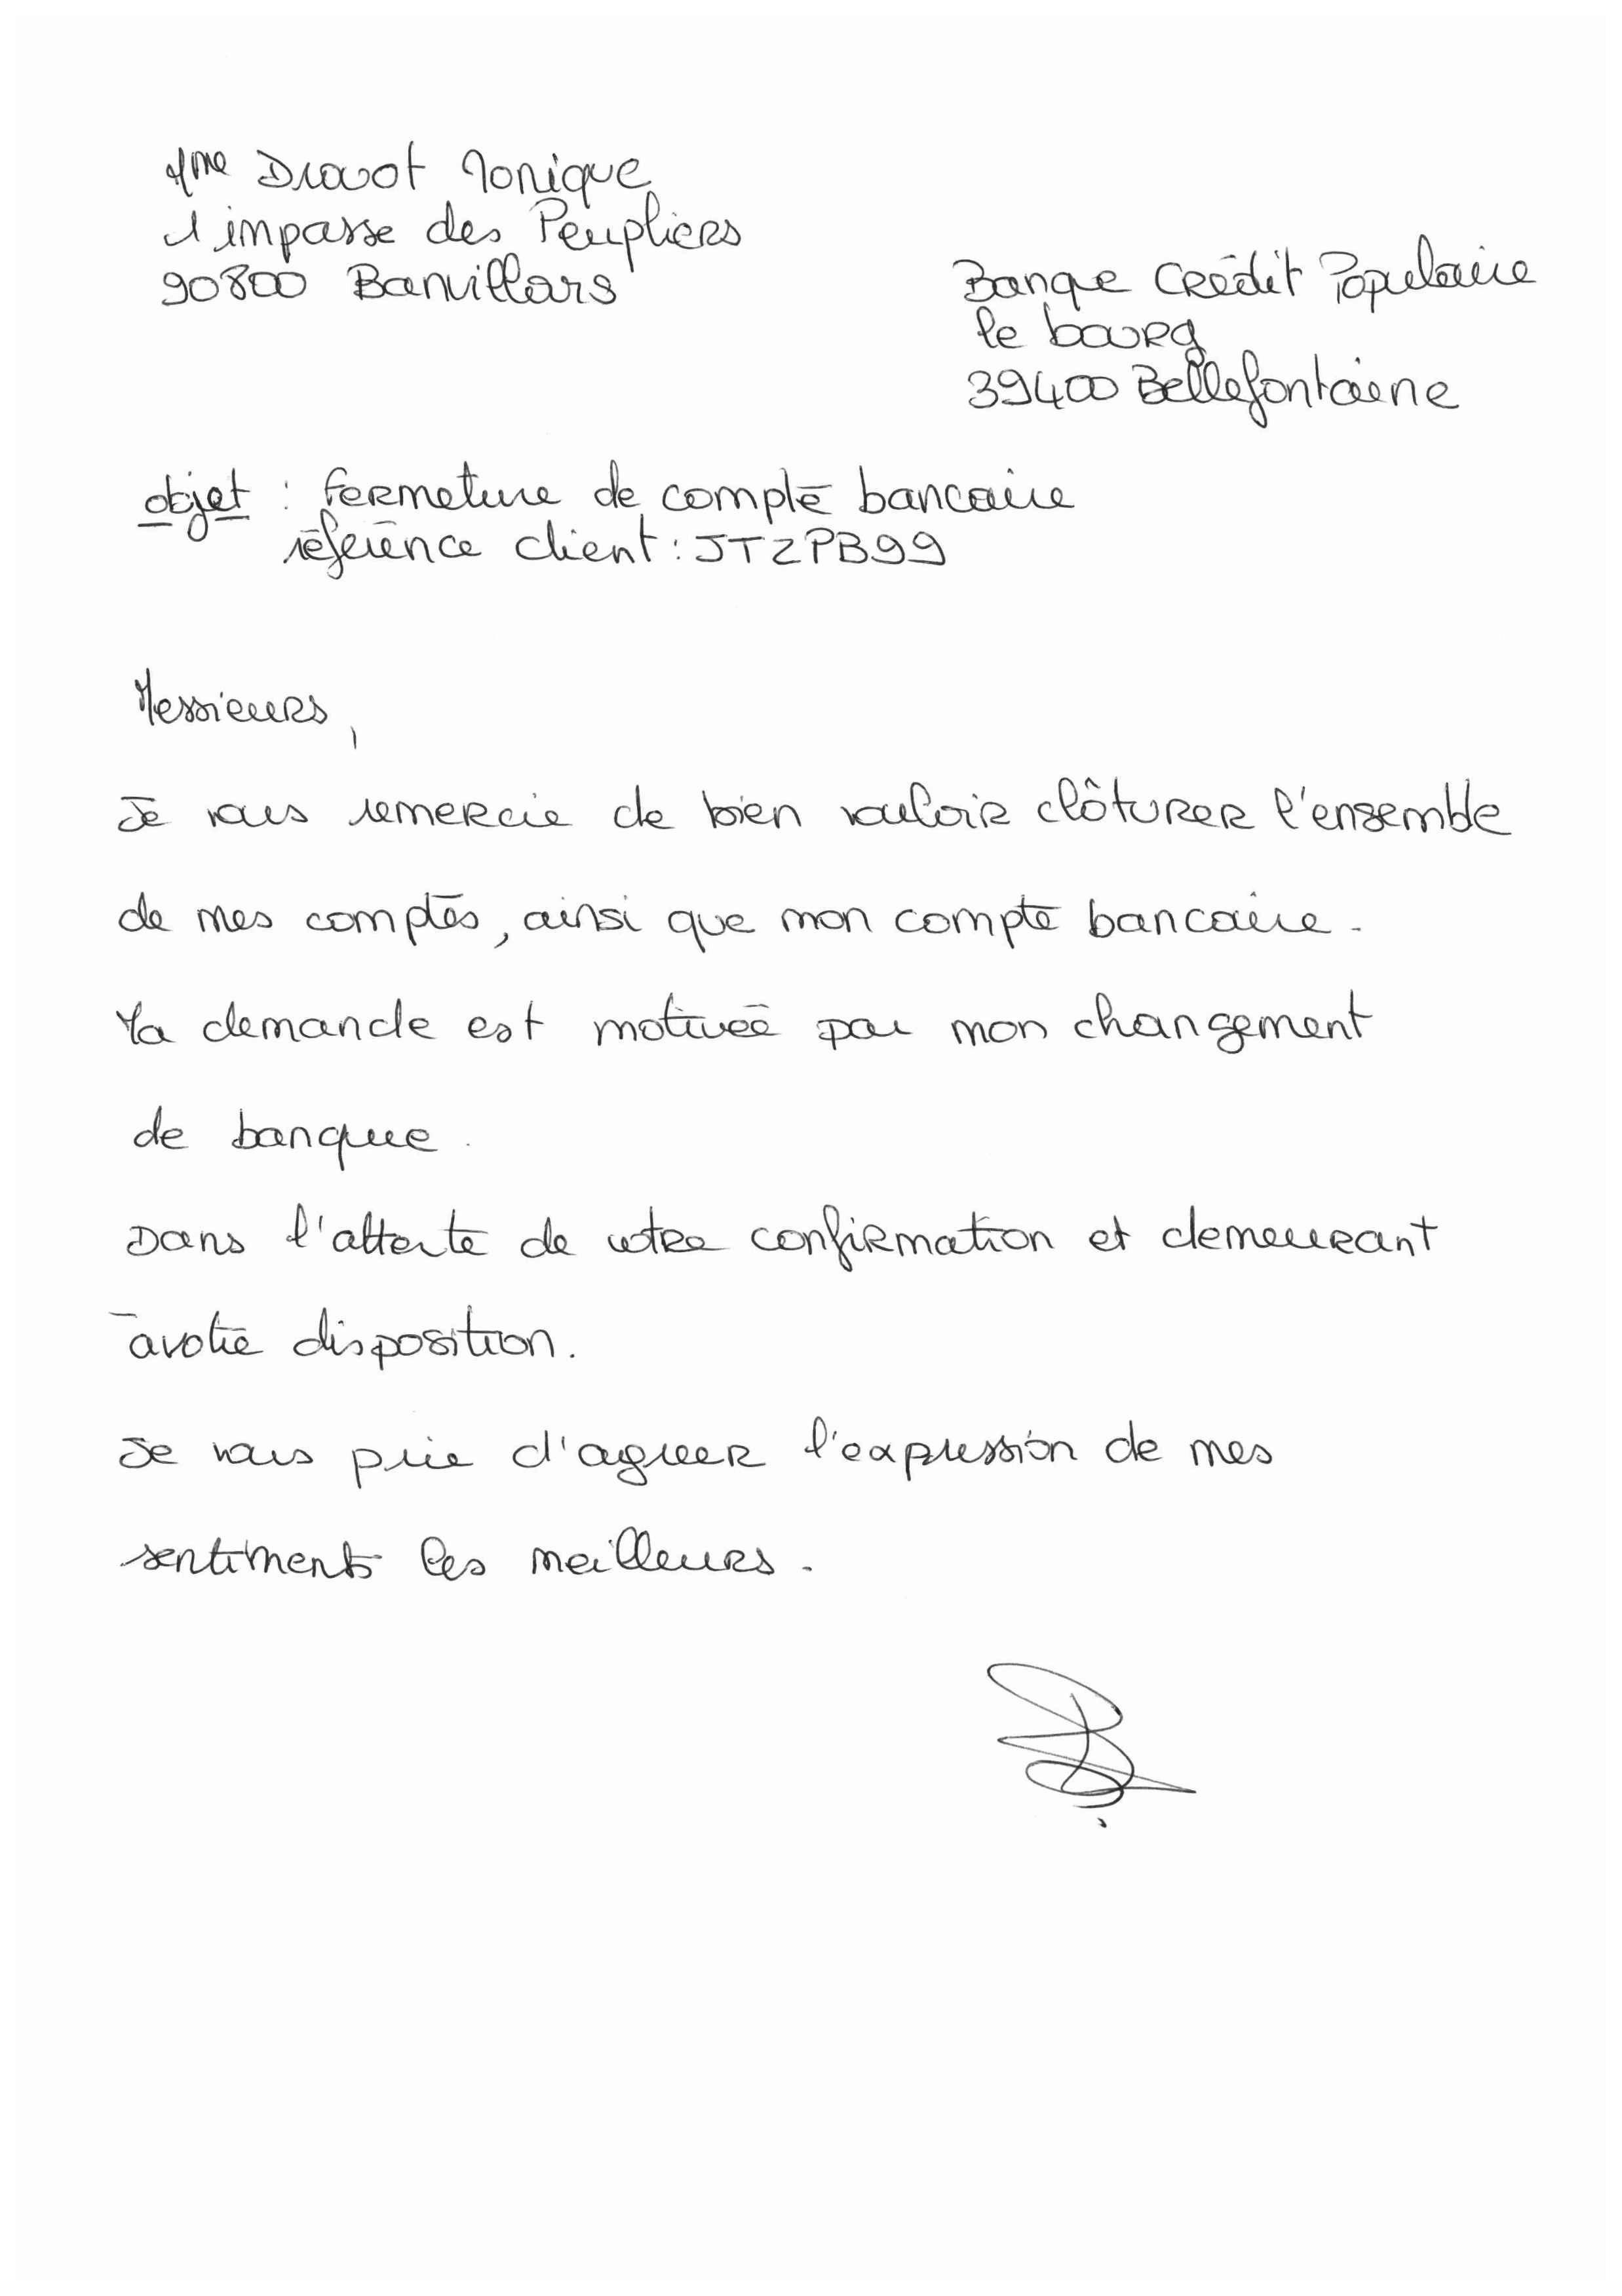 Mme Dravot Monique
1 impasse des Peupliers
90800 Banvillars
Banque Crédit Populaire
le bourg
39400 Bellefontaine
objet : fermeture de compte bancaire
référence client : JTZPB99
Messieurs,
Je vous remercie de bien vouloir clôturer l'ensemble
de mes comptes, ainsi que mon compte bancaire.
Ma demande est motivée par mon changement
de banque.
Dans l'attente de votre confirmation et demeurant
à votre disposition.
Je vous prie d'agréer l'expression de mes
sentiments les meilleurs.